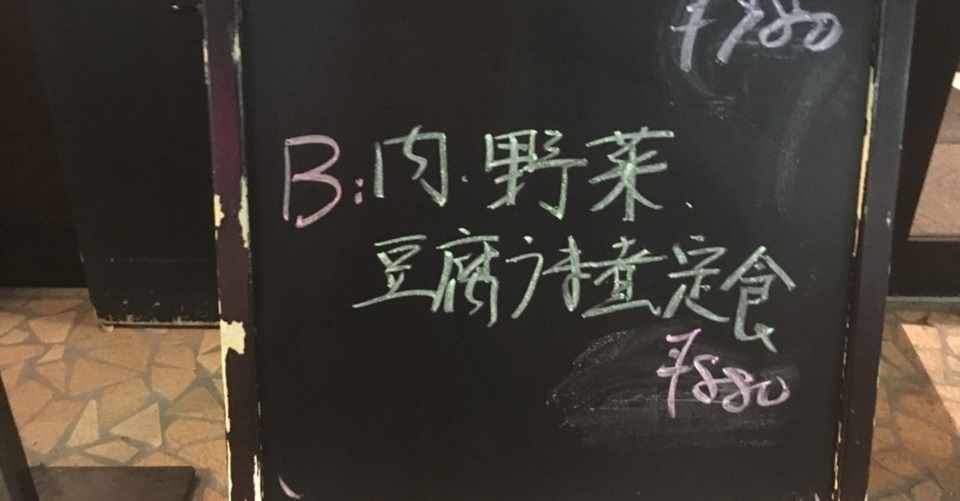 B:肉・野菜、
豆腐うま煮定食
¥880